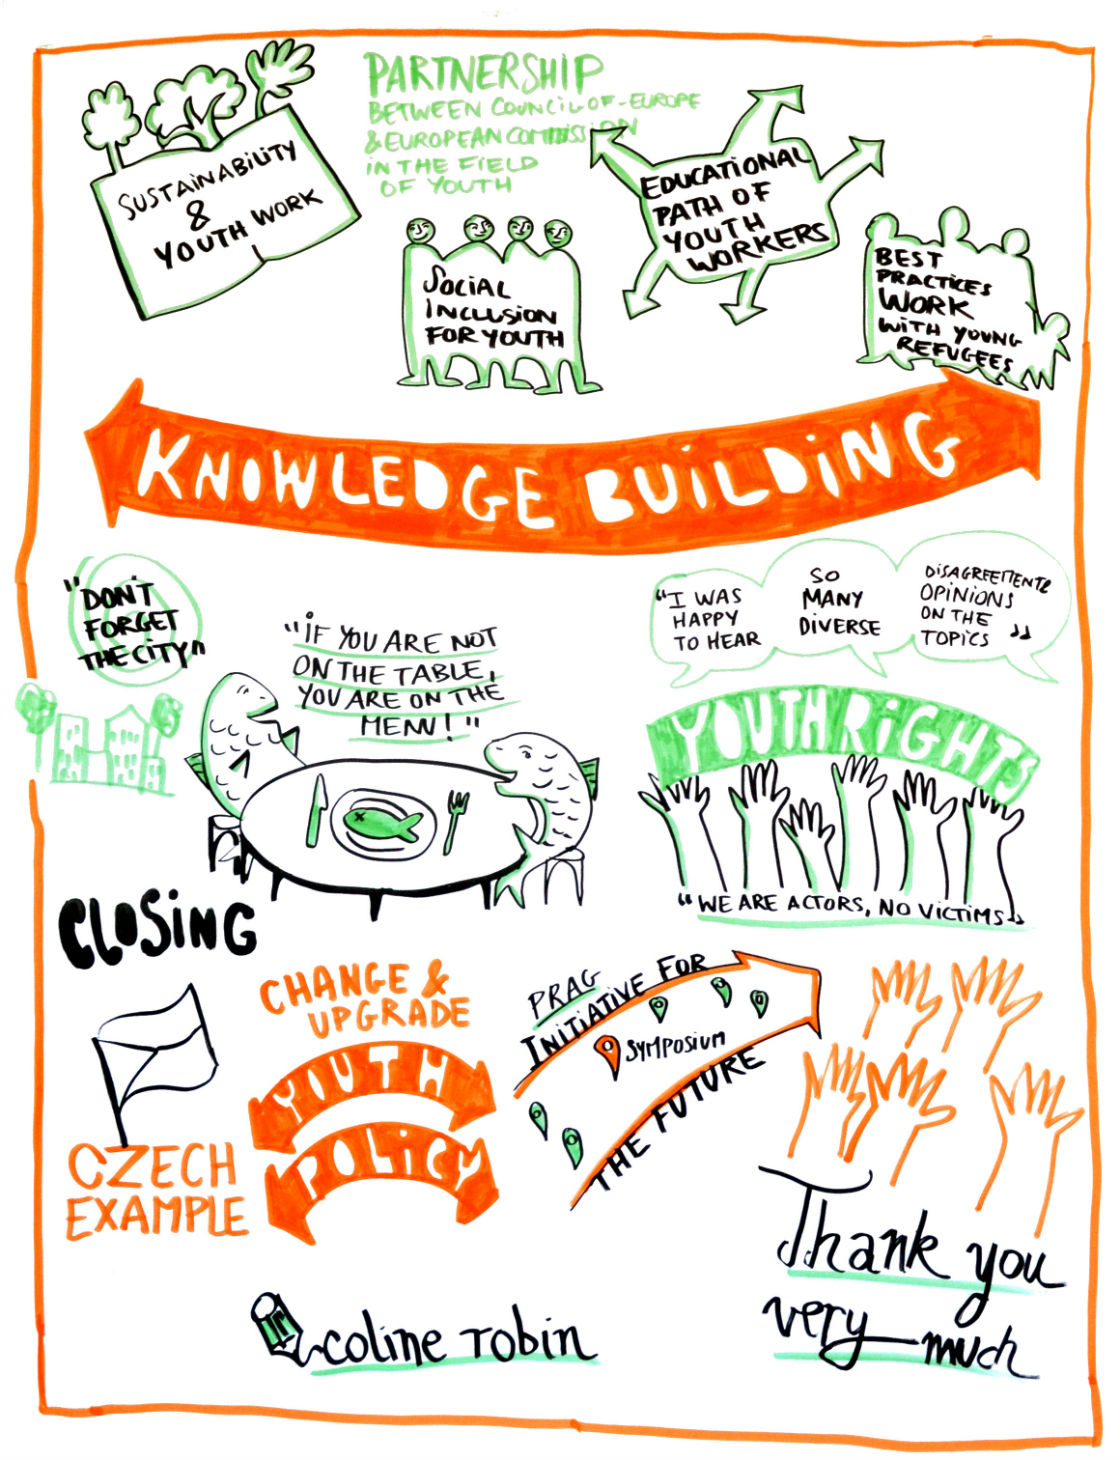 PARTNERSHIP
BETWEEN COUNCIL-OF-EUROPE
& EUROPEAN COMMISSION
IN THE FIELD
OF YOUTH
SUSTAINABILITY
&
YOUTH WORK
SOCIAL
INCLUSION
FOR YOUTH
EDUCATIONAL
PATH OF
YOUTH
WORKERS
BEST
PRACTICES
WORK
WITH YOUNG
REFUGEES
KNOWLEDGE BUILDING
"DON'T
FORGET
THE CITY"
"IF YOU ARE NOT
ON THE TABLE,
YOU ARE ON THE
MENU!"
"I WAS
HAPPY
TO HEAR
SO
MANY
DIVERSE
DISAGREEMENT &
OPINIONS
ON THE
TOPICS"
YOUTH RIGHTS
"WE ARE ACTORS, NO VICTIMS"
CLOSING
CZECH
EXAMPLE
CHANGE &
UPGRADE
YOUTH
POLICY
PRAG
INITIATIVE FOR
SYMPOSIUM
THE FUTURE
Thank you
very much
coline robin